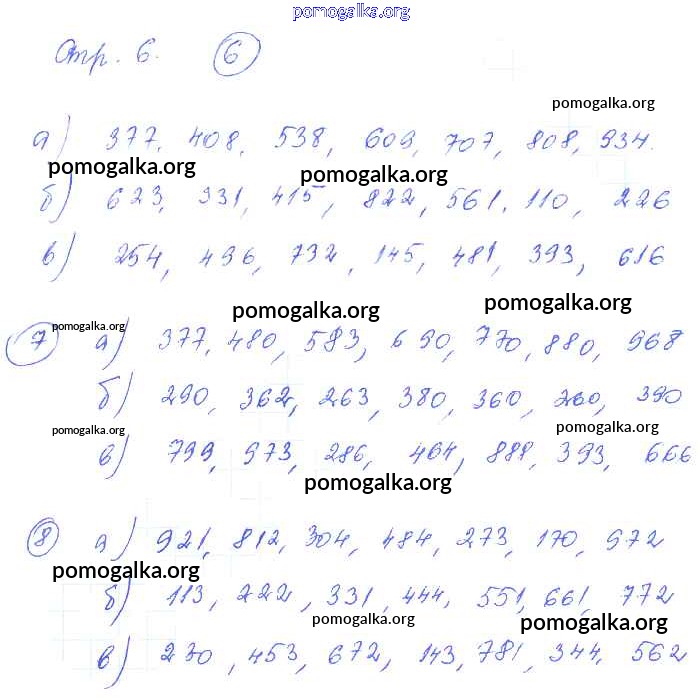 pomogalka.org
Стр. 6. 6
pomogalka.org
а) 377, 408, 538, 609, 707, 808, 934.
pomogalka.org pomogalka.org
б) 623, 331, 415, 822, 561, 110, 226
в) 254, 496, 732, 145, 481, 393, 616
pomogalka.org pomogalka.org
pomogalka.org
7 а) 377, 480, 583, 690, 770, 880, 968
б) 290, 362, 263, 380, 360, 260, 390
pomogalka.org pomogalka.org
в) 799, 973, 286, 464, 888, 393, 666
pomogalka.org
8 а) 921, 812, 304, 484, 273, 170, 972
pomogalka.org
б) 113, 222, 331, 444, 551, 661, 772
pomogalka.org pomogalka.org
в) 270, 453, 672, 143, 781, 344, 562